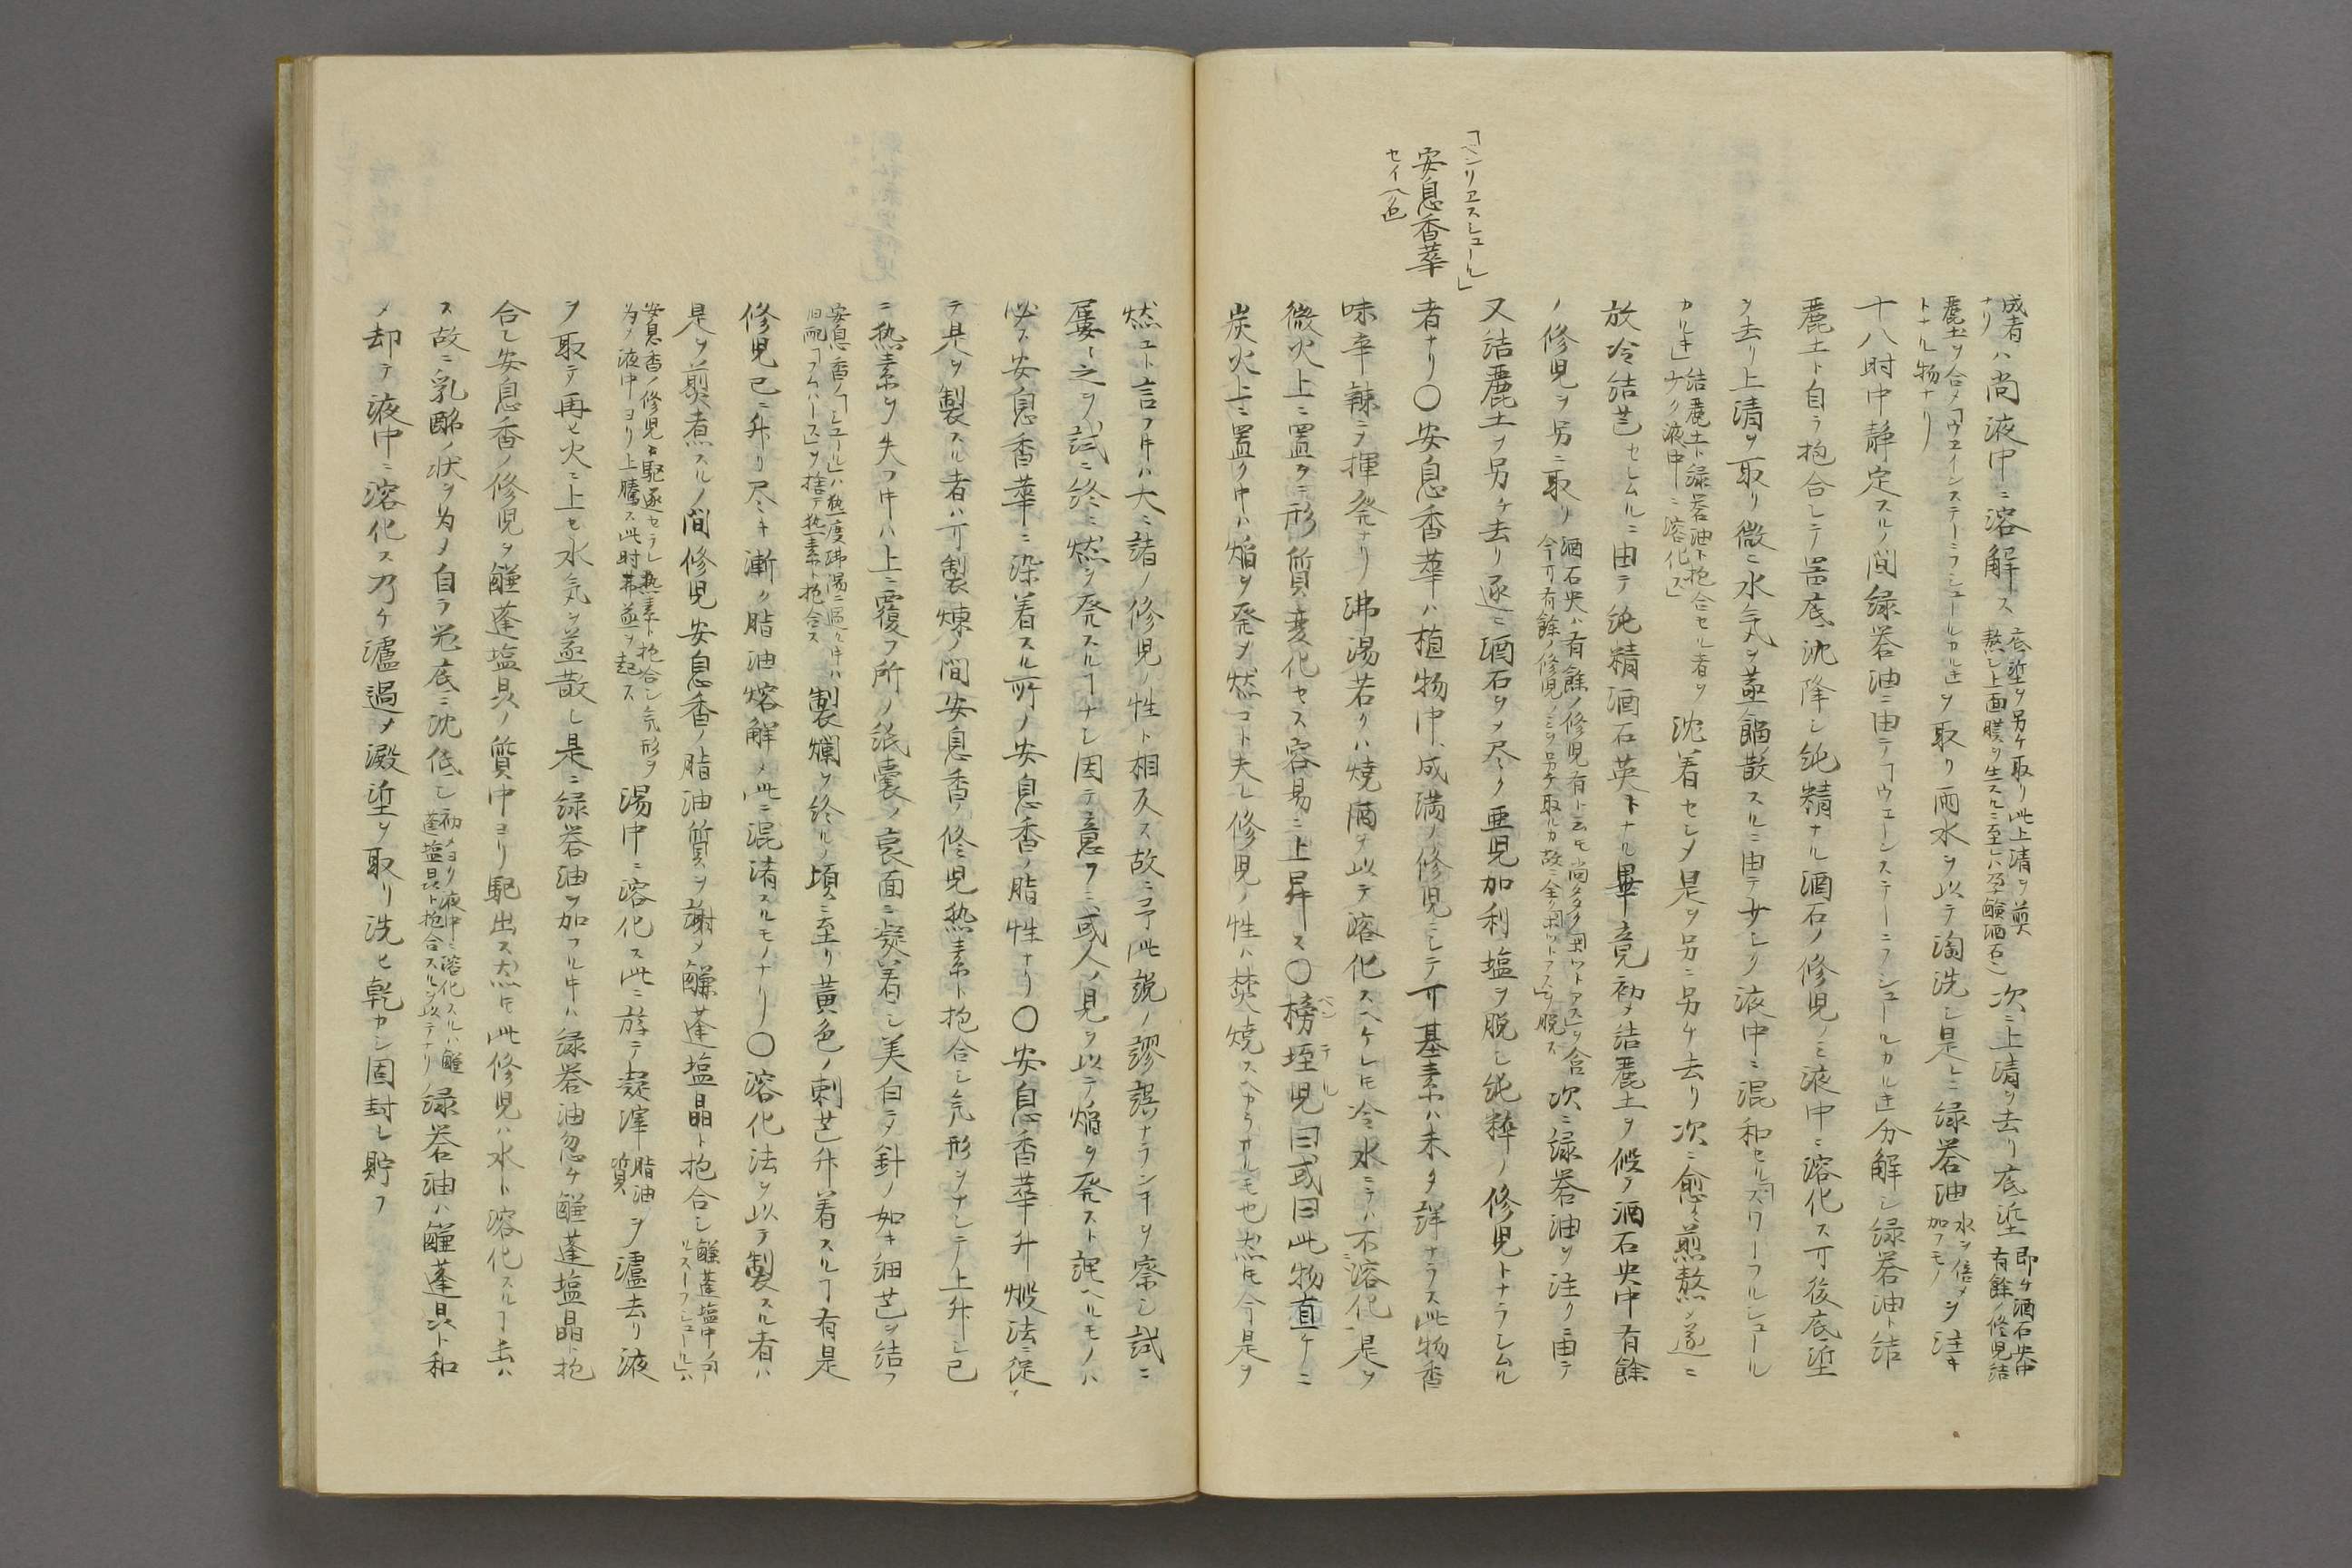 成者ハ尚液中ニ溶解ス 底坔ヲ另ケ取リ此上清ヲ煎熬シ上面膜ヲ生スルニ至レハ乃チ酸酒石ニ 次ニ上清ヲ去リ底坔 即ケ酒石英中有餘ノ修児結
麗土ヲ合メ「ウエインステーニフシュールカルキ」ヲ取リ雨水ヲ以テ淘洗シ是レニ緑礬油 水ヲ倍メ加フモノ ヲ注キ
トナル物ナリ
十八時中静定スルノ間緑礬油ニ由テ「ウエーンステーニフシュールカルキ」分解シ緑礬油ト結
麗土ト自ラ抱合シテ器底ニ沈降シ純精ナル酒石ノ修児ノミ液中ニ溶化ス可後底坔
ヲ去リ上清ヲ取リ微ニ水気ヲ蒸餾散スルニ由テ少シク液中ニ混和セル「スワーフルシュール
カルキ」 結麗土ト緑礬油ト抱合セル者ヲ少ク液中ニ溶化ス 沈着セシメ是ヲ另ニ另ケ去リ次ニ愈々煎熬シ遂ニ
放冷結芒セシムルニ由テ純精酒石英トナル畢竟初メ結麗土ヲ候ノ酒石英中有餘
ノ修児ヲ另ニ取リ 酒石英ハ有餘ノ修児有ト云モ尚タタク「ポットアス」ヲ含今可有餘ノ修児ノミヲ另チ取ルカ故ニ全ク「ポットアス」ヲ脱ス 次ニ緑礬油ヲ注クニ由テ
又結麗土ヲ另ケ去リ遂ニ酒石ヲメ尽ク亜児加利塩ヲ脱シ純粋ノ修児トナラシムル
「ベンリアスシュール」
安息香華
セイヘ色
者ナリ〇安息香華ハ植物中ニ成満ノ修児ニシテ可基素ハ未タ詳ナラス此物香
味辛辣ニテ揮発ナリ沸湯若クハ焼酒ヲ以テ溶化スヘケレ𪜈冷水ニテハ不溶化是ヲ
微火上ニ置クニ形質変化セス容易ニ上昇ス〇榜垤児曰或曰此物直ケニ
炭火上ニ置ク𪜈ハ焔ヲ発ヲ燃コト夫レ修児ノ性ハ焚焼スヘカラサルモ也然𪜈今是ヲ
燃ユト言フ𪜈ハ大ニ諸ノ修児ノ性ト相反ス故ニ予此説ノ謬誤ナランヿヲ察シ試ニ
屡々之ヲ試ニ終ニ燃ヲ発スルヿナシ因テ意フニ或人ノ見ヲ以テ焔ヲ発スト謂ヘルモノハ
必ス安息香華ニ染着スル所ノ安息香ノ脂性ナリ〇安息香華升煅法ニ従
テ是ヲ製スル者ハ可製煉ノ間安息香ノ修児熱素ト抱合シ気形ヲナシテ上升シ已
ニ熱素ヲ失フ𪜈ハ上ニ覆フ所ノ紙嚢ノ裏面ニ凝着シ美白ニメ針ノ如キ細芒ヲ結フ
安息香ノ「シュール」ハ熱度沸湯ニ過クレハ旧配「フルハース」ヲ捨テ熱素ト抱合ス 製爛ヲ終ルノ頃ニ至リ黄色ノ刺芒升着スルヿ有是
修児已ニ升リ尽キ漸ク脂油熔解メ此ニ混淆スルモノナリ〇溶化法ヲ以テ製スル者ハ
是ヲ煎煮スルノ間修児安息香ノ脂油質ヲ謝メ䤘蓬塩晶ト抱合シ
安息香ノ修児ハ駆逐セラレ熱素ト抱合シ気形ヲ為メ液中ヨリ上騰ス此時沸蒸ヲ起ス 湯中ニ溶化ス此ニ於テ凝滓 脂油質 ヲ濾去リ液
ヲ取テ再ヒ火ニ上セ水気ヲ蒸散シ是ニ緑礬油ヲ加フル𪜈ハ緑礬油忽ケ䤘蓬塩晶ト抱
合シ安息香ノ修児ヲ䤘蓬塩具ノ質中ヨリ駆出ス然𪜈此修児ハ水ト溶化スルヿ无ハ
ス故ニ乳酪ノ状ヲ為メ自ラ器底ニ沈低シ 初メヨリ液中ニ溶化スルハ䤘蓬塩具ト抱合スルヲ以テナリ 緑礬油ハ䤘蓬具ト和
メ却テ液中ニ溶化ス乃ケ濾過メ澱坔ヲ取リ洗ヒ乾カシ固封シ貯フ